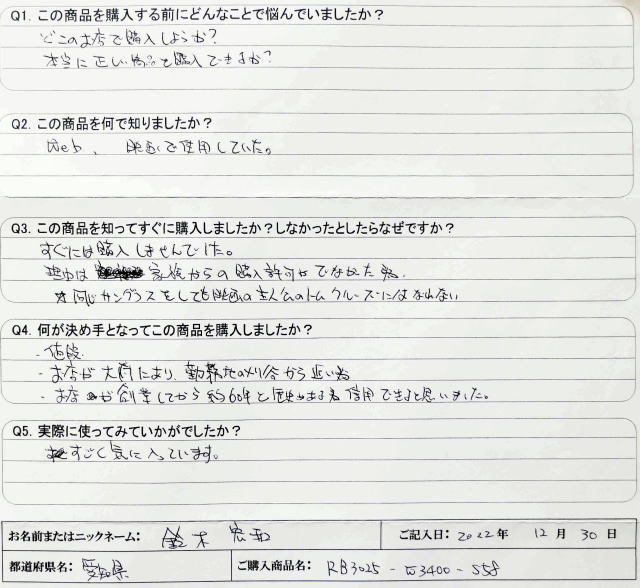 Q1. この商品を購入する前にどんなことで悩んでいましたか？
どこのお店で購入しようか？
本当に正しい商品を購入できるか？
Q2. この商品を何で知りましたか？
Web、映画で使用していた。
Q3. この商品を知ってすぐに購入しましたか？しなかったとしたらなぜですか？
すぐには購入しませんでした。
理由は 家族からの購入許可がでなかった為。
※同じサングラスをしても映画の主人公のトム クルーズにはなれない
Q4. 何が決め手となってこの商品を購入しましたか？
・値段
・お店が大府にあり、勤務地の刈谷から近い為
・お店が創業してから約60年と歴史ある為信用できると思いました。
Q5. 実際に使ってみていかがでしたか？
すごく気に入っています。
お名前またはニックネーム： 鈴木
ご記入日：2022年 12月 30日
都道府県名：愛知県
ご購入商品名：RB3025-W3400-558